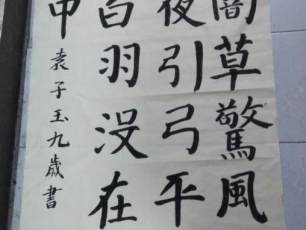 闇草驚風
夜引弓平
白羽沒在
中
袁子玉九歲書